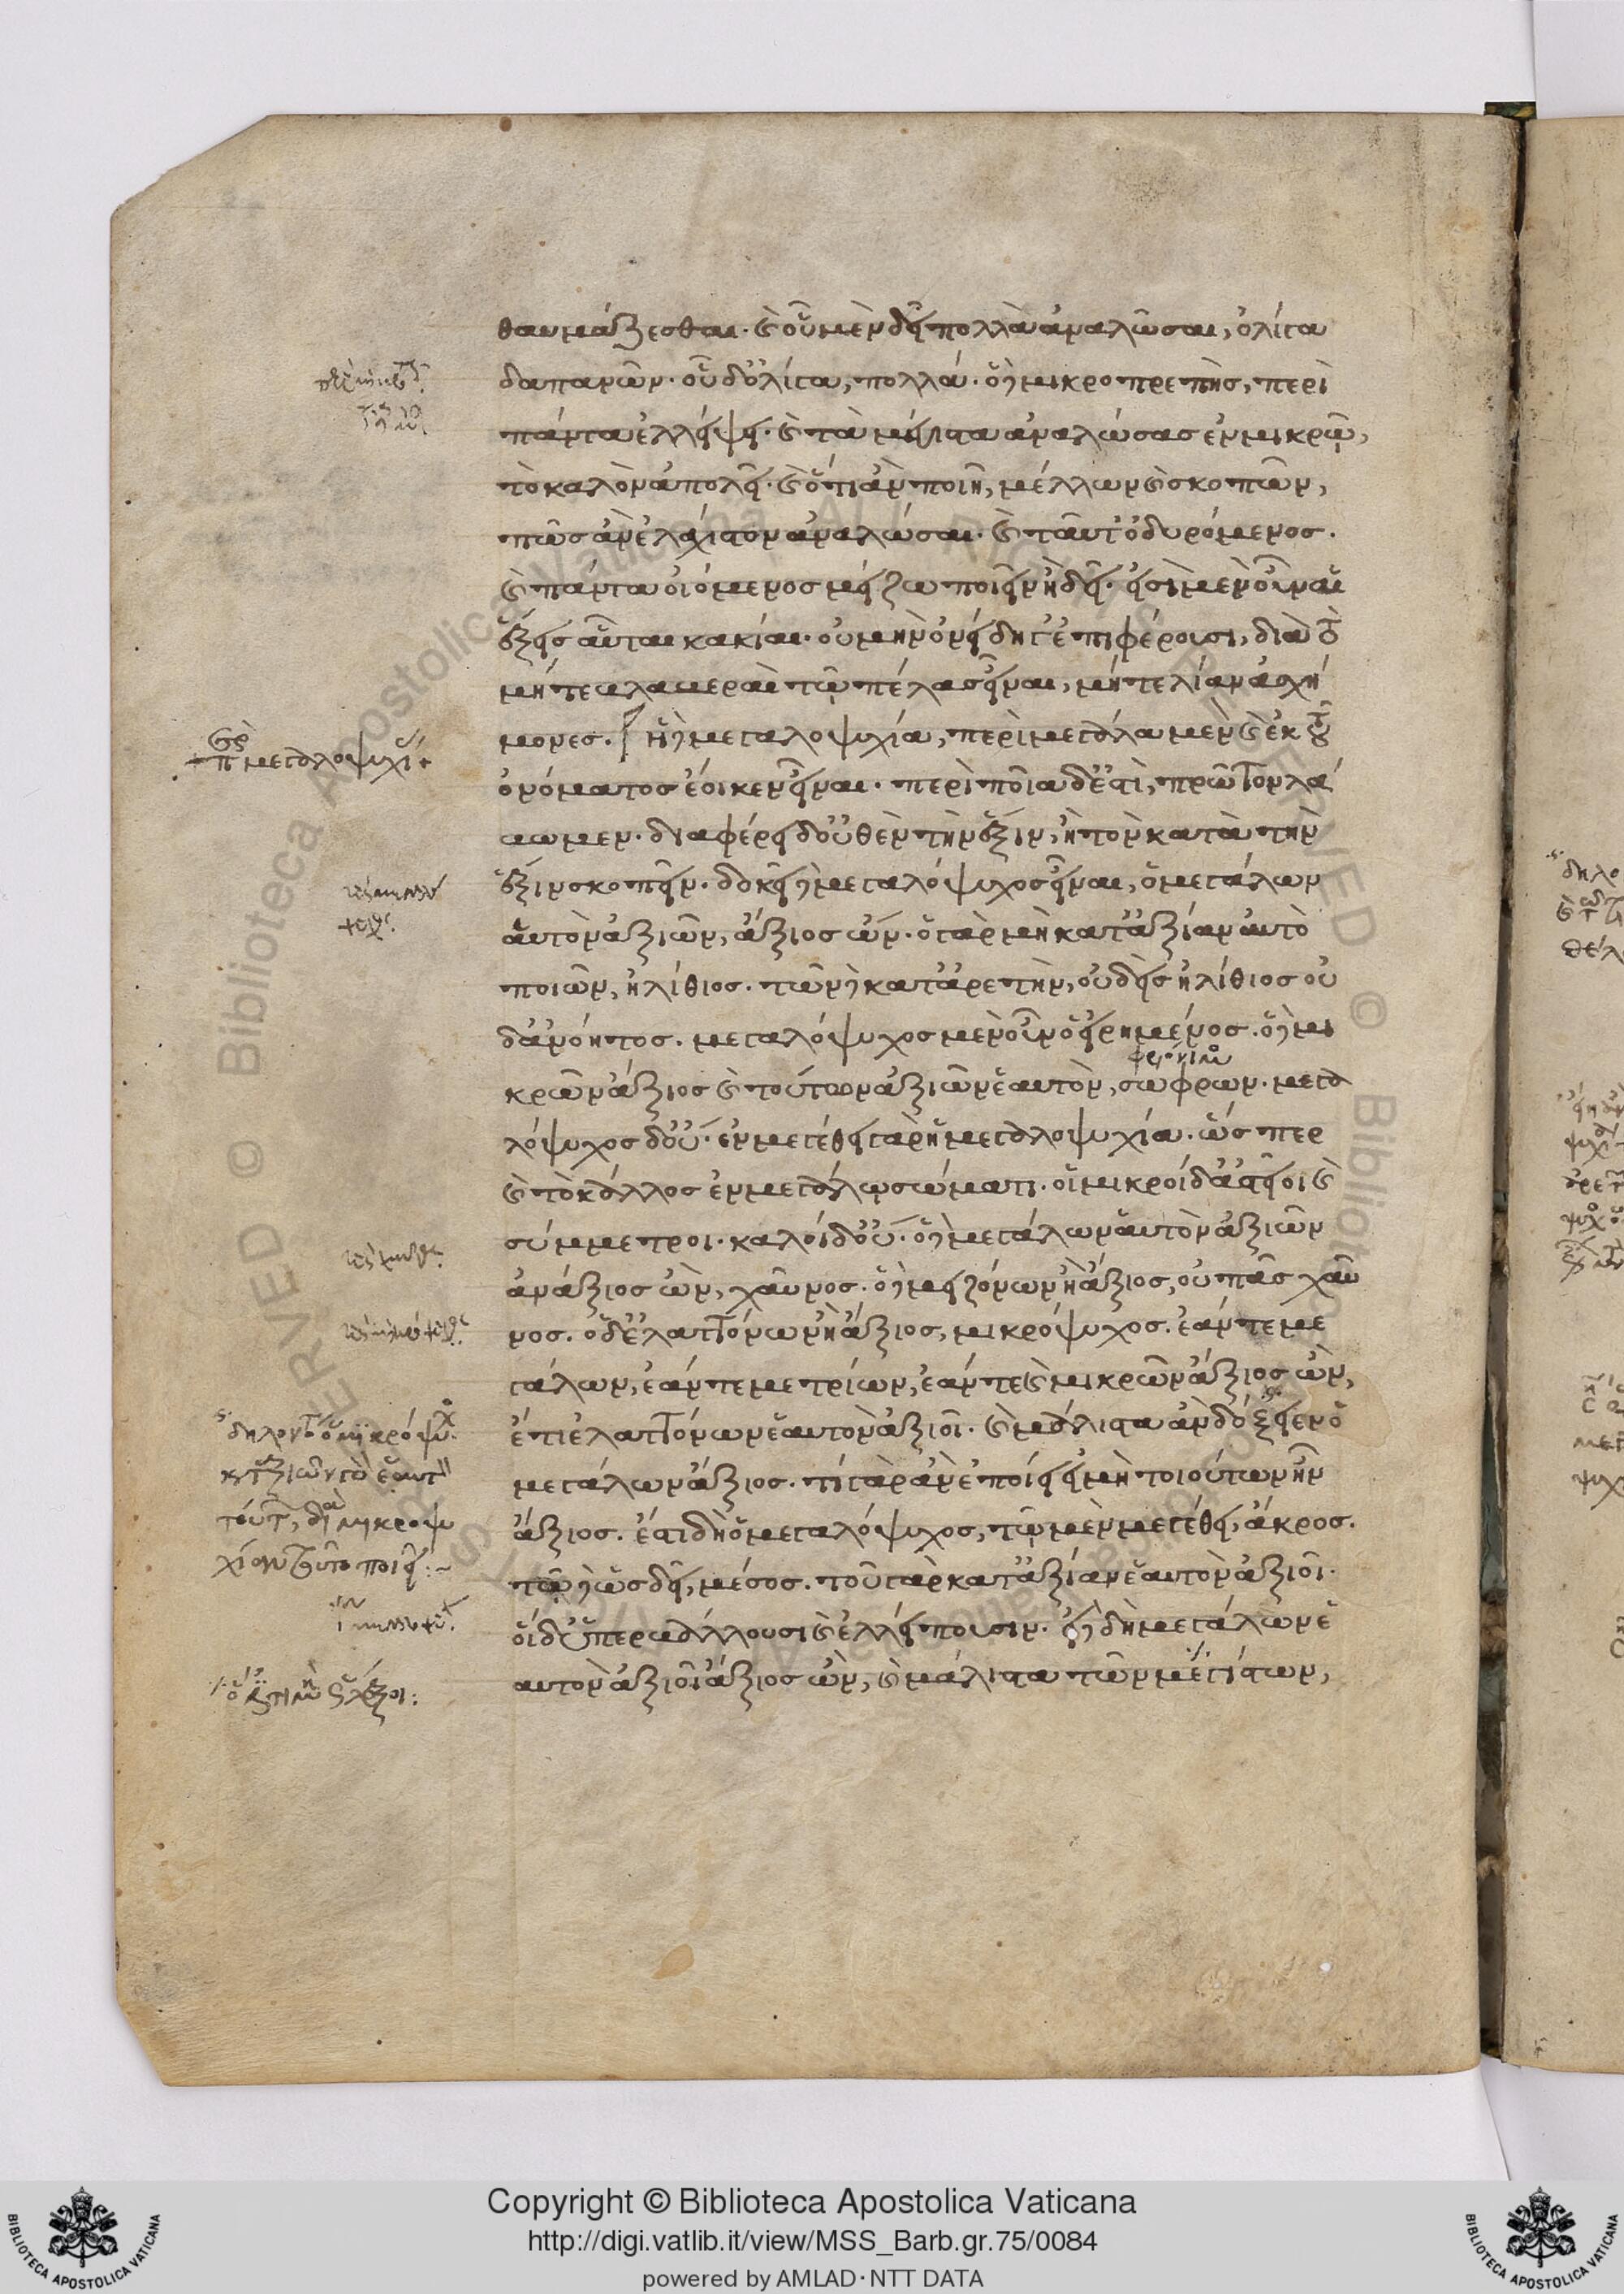 θαυμάζεσθαι· καὶ οὗ μὲν δεῖ πολλὰ ἀναλῶσαι, ὀλίγα
δαπανῶν· οὗ δ' ὀλίγα, πολλά· ὁ δὲ μικροπρεπὴς, περὶ
πάντα ἐλλείψει· καὶ τὰ μέγιστα ἀναλώσας ἐν μικρῷ,
τὸ καλὸν ἀπολεῖ· καὶ ὅτι ἂν ποιῇ, μέλλων καὶ σκοπῶν,
πῶς ἂν ἐλάχιστον ἀναλώσαι· καὶ ταῦτ' ὀδυρόμενος·
καὶ πάντα οἰόμενος μείζω ποιεῖν ἢ δεῖ· εἰσὶ μὲν οὖν αἱ
ἕξεις αὗται κακίαι· οὐ μὴν ὀνείδη γ' ἐπιφέρουσι, διὰ τὸ
μήτε βλαβεραὶ τῷ πέλας εἶναι, μήτε λίαν ἀσχή
μονες. ἡ δὲ μεγαλοψυχία, περὶ μεγάλα μὲν καὶ ἐκ τοῦ
ὀνόματος ἔοικεν εἶναι· περὶ ποῖα δ' ἐστὶ, πρῶτον λά
βωμεν· διαφέρει δ' οὐθὲν τὴν ἕξιν, ἢ τὸν κατὰ τὴν
ἕξιν σκοπεῖν· δοκεῖ δὲ μεγαλόψυχος εἶναι, ὁ μεγάλων
αὑτὸν ἀξιῶν, ἄξιος ὤν· ὁ γὰρ μὴ κατ' ἀξίαν αὐτὸ
ποιῶν, ἠλίθιος· τῶν δὲ κατ' ἀρετὴν, οὐδεὶς ἠλίθιος οὐ
δ' ἀνόητος. μεγαλόψυχος μὲν οὖν ὁ εἰρημένος. ὁ δὲ μι
κρῶν ἄξιος καὶ τούτων ἀξιῶν ἑαυτὸν, σώφρων· μεγα
λόψυχος δ' οὔ· ἐν μεγέθει γὰρ ἡ μεγαλοψυχία· ὥσπερ
καὶ τὸ κάλλος ἐν μεγάλῳ σώματι· οἱ μικροὶ δ' ἀστεῖοι καὶ
σύμμετροι· καλοὶ δ' οὔ· ὁ δὲ μεγάλων αὑτὸν ἀξιῶν
ἀνάξιος ὢν, χαῦνος· ὁ δὲ μειζόνων ἢ ἄξιος, οὐ πᾶς χαῦ
νος. ὁ δ' ἐλαττόνων ἢ ἄξιος, μικρόψυχος. ἐάν τε με
γάλων, ἐάν τε μετρίων, ἐάν τε καὶ μικρῶν ἄξιος ὢν,
ἔτι ἐλαττόνων ἑαυτὸν ἀξιοῖ· καὶ μάλιστα ἂν δόξειεν ὁ
μεγάλων ἄξιος. τί γὰρ ἂν ἐποίει εἰ μὴ τοιούτων ἦν
ἄξιος. ἔστι δὴ ὁ μεγαλόψυχος, τῷ μὲν μεγέθει, ἄκρος.
τῷ δὲ ὡς δεῖ, μέσος. τοῦ γὰρ κατ' ἀξίαν ἑαυτὸν ἀξιοῖ·
οἱ δ' ὑπερβάλλουσι καὶ ἐλλείπουσιν. εἰ δὲ δὴ μεγάλων ἑ
αυτὸν ἀξιοῖ ἄξιος ὢν, καὶ μάλιστα τῶν μεγίστων,
περὶ μεγαλοψυχίας
Copyright © Biblioteca Apostolica Vaticana
http://digi.vatlib.it/view/MSS_Barb.gr.75/0084
powered by AMLAD · NTT DATA